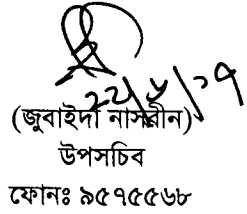 ২২/৮/১৭
(জুবাইদা নাসরীন)
উপসচিব
ফোনঃ ৯৫৭৫৫৬৮